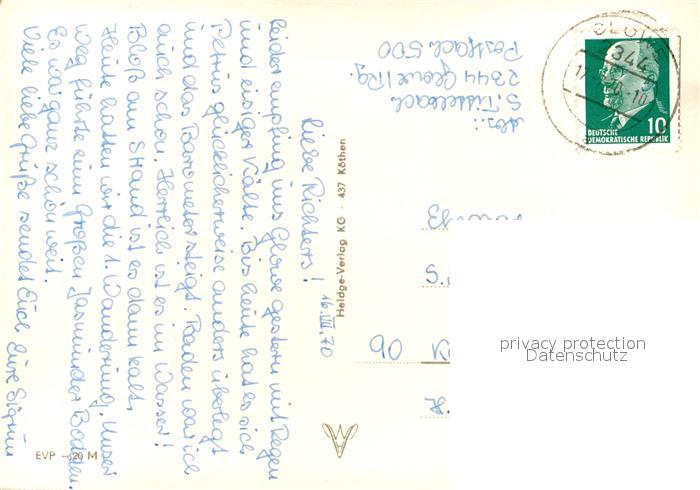 16.VII.70
Liebe Richters!
Leider empfing uns Glowe gestern mit Regen
und eisiger Kälte. Bis heute hat es sich
Petrus glücklicherweise anders überlegt
und das Barometer steigt. Baden war ich
auch schon. Herrlich ist es im Wasser!
Bloß am Strand ist es dann kalt.
Heute hatten wir die 1. Wanderung. Unser
Weg führte zum Großen Jasmunder Bodden.
Es war ganz schön weit.
Viele liebe Grüße sendet Euch Eure Sigrun
Abs.:
2344 Glowe/Rg.
Postfach 500
Heldge-Verlag KG · 437 Köthen
EVP –20 M
GLOWE
2344
DEUTSCHE
DEMOKRATISCHE REPUBLIK
10
privacy protection
Datenschutz